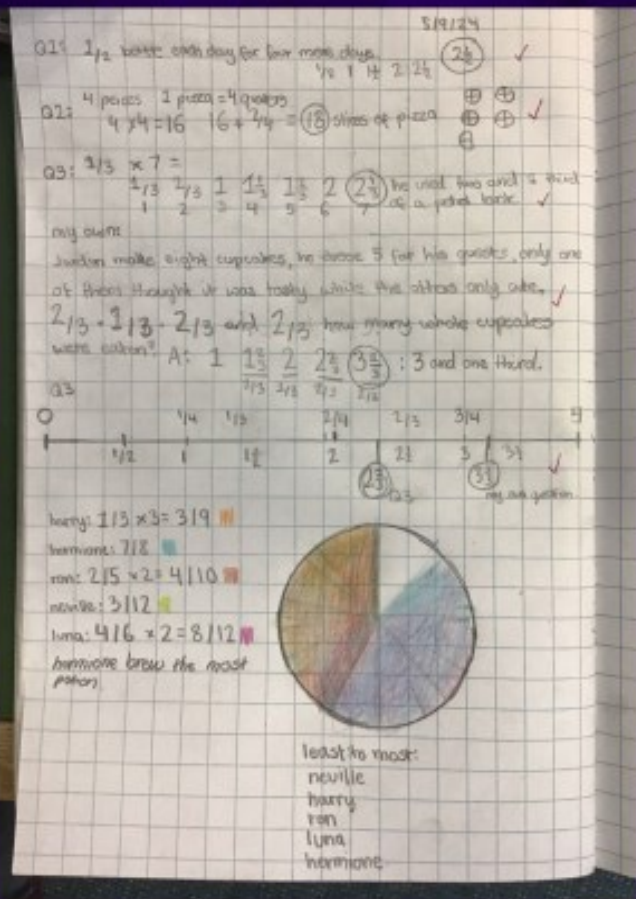 5/9/24
Q1: 1/2 bottle each day for four more days.
1/2 1 1½ 2 2½ 2½
Q2: 4 people 1 pizza = 4 quarters
4 x 4 = 16 16 + 2/4 = 18 slices of pizza
Q3: 1/3 x 7 =
1/3 2/3 1 1⅓ 1⅔ 2 2⅓ he used two and a third
1 2 3 4 5 6 7 of a
my own:
make eight cupcakes, he chose 5 for his guests, only one
of them thought it was tasty while the others only ate.
2/3 - 1/3 - 2/3 and 2/3 how many whole cupcakes
were eaten? A: 1 2 : 3 and one third.
2/3 2/3 2/3
Q3
0 1/4 1/3 2/4 2/3 3/4 5
1/2 1 1½ 2 2½ 3 3½
Q3 my own question
harry: 1/3 x3= 3/9
hermione: 7/8
ron: 2/5 x2= 4/10
neville: 3/12
luna: 4/6 x2= 8/12
hermione brew the most
potion
least to most:
neville
harry
ron
luna
hermione